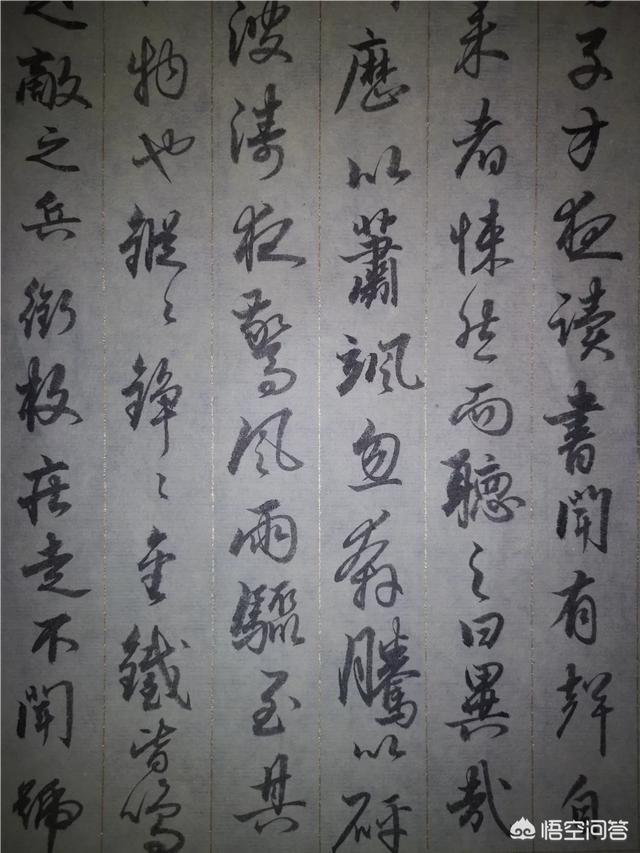 子方夜读書聞有聲自
来者悚然而聽之曰異哉
歷以蕭颯忽奔騰以砰
波濤夜驚風雨驟至其
物也鏦〻錚〻金鐵皆鳴
敵之兵銜枚疾走不聞號
悟空问答